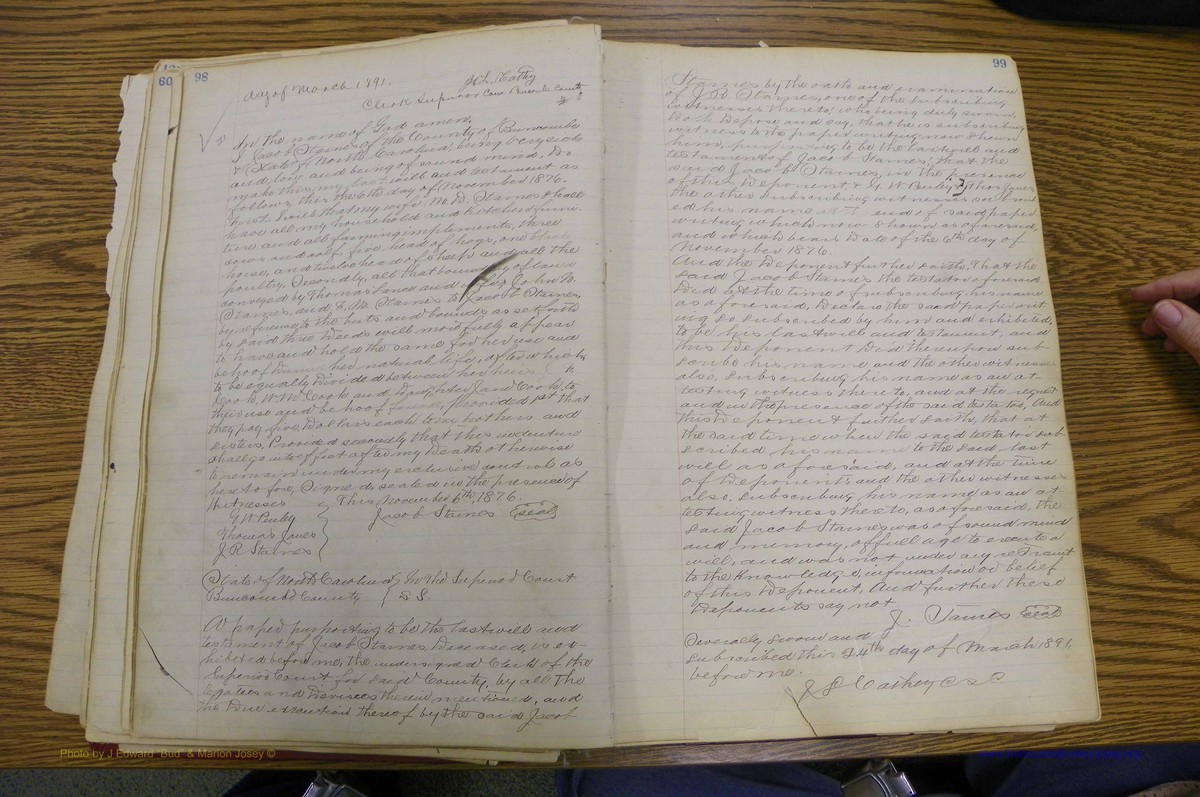 98
day of March 1891.
J L Cathey
Clerk Superior Court Buncombe County
In the name of God amen,
I Jacob Starnes of the County of Buncombe
& State of North Carolina, being very sick
and, low and being of sound mind, Do
make this my last will and testament as
follows, this the 6th day of November 1876.
first I will that my wife M. D. Starnes shall
have all my household and kitchen furni-
ture and all farming implements, three
cows and calf, five head of hogs, one
horse, and twelve head of sheep and all the
poultry. Secondly, all that boundary of land
conveyed by Thomas Lance and wife, John W.
Starnes, and Starnes to Jacob Starnes,
by reference to the buts and bounds as set forth
by said three deeds will more fully appear
to have and hold the same for her use and
behoof During her natural life, after which
to be equally divided between her heirs
Cook, W. W. Cook and Daughter Jane Cook, to
their use and behoof forever, Provided 1st that
they pay five Dollars each to my brothers and
sisters, Provided secondly that this indenture
shall go into effect after my Death otherwise
to remain under my exclusive control as
heretofore, Signed, sealed in the presence of
Witnesses This November 6th, 1876.
Jacob Starnes seal
G W Penley
Thomas Jones
J. R Starnes
State of North Carolina } In the Superior Court
Buncombe County } S S.
A paper purporting to be the last will and
testament of Jacob Starnes, Deceased, is ex-
hibited before me, the undersigned Clerk of the
Superior Court for said County, by all the
legatees and Devisees therein mentioned, and
the Due execution thereof by the said Jacob
99
Starnes by the oath and examination
of J R Starnes, one of the subscribing
witnesses thereto; who being duly sworn,
Doth Depose and say, that he is subscribing
witness to the paper writing now shown
him, purporting to be the last will and
testament of Jacob Starnes; that the
said Jacob Starnes, in the presence
of this Deponent, & G. W Penley & Thos Jones
the other subscribing witnesses subscrib-
ed his name at end of said paper
writing which now shown as aforesaid,
and which bears Date of the 6th day of
November 1876.
And the Deponent further saith, That the
said Jacob Starnes the testator aforesaid
Did at the time of subscribing his name
as aforesaid, Declare the said paper writ-
ing so subscribed by him and exhibited,
to be his last will and testament, and
this Deponent Did thereupon sub-
scribe his name and the other witnesses
also, subscribing his name as an at-
testing witness thereto, and at the request
and in the presence of the said testator, And
this Deponent further saith, that at
the said time when the said testator sub-
scribed his name to the said last
will as aforesaid, and at the time
of Deponents and the other witnesses
also, subscribing his name as an at-
testing witness thereto, as aforesaid, the
said Jacob Starnes was of sound mind
and memory, of full age to execute a
will, and was not under any restraint
to the knowledge, information or belief
of this Deponent, And further these
Deponents say not
J. Starnes seal
Severally sworn and
subscribed this 24th day of March 1891,
before me.
J L Cathey C S C
60
Photo by J Edward "Bud" & Marion Josey ©